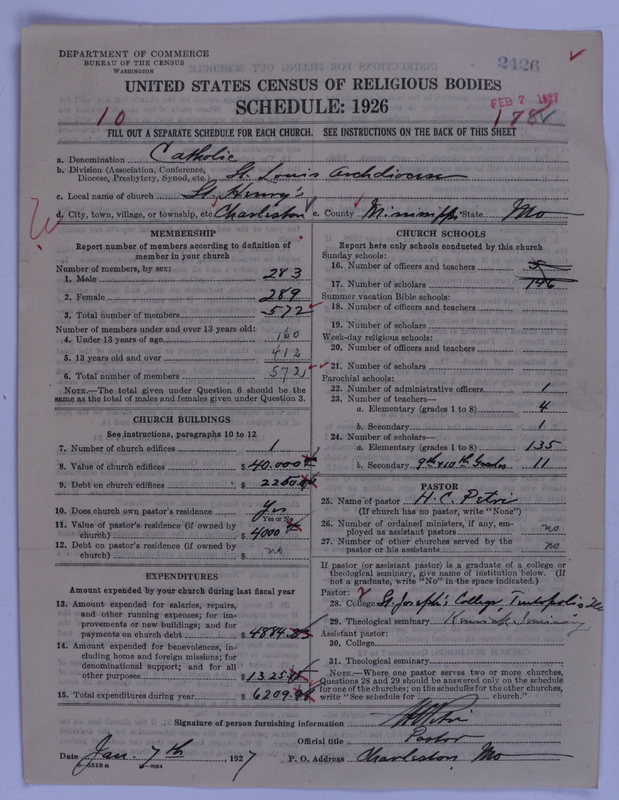 DEPARTMENT OF COMMERCE
BUREAU OF THE CENSUS
WASHINGTON
2426
UNITED STATES CENSUS OF RELIGIOUS BODIES
SCHEDULE: 1926
FEB 7 1927
10
178
FILL OUT A SEPARATE SCHEDULE FOR EACH CHURCH. SEE INSTRUCTIONS ON THE BACK OF THIS SHEET
a. Denomination Catholic
b. Division (Association, Conference, Diocese, Presbytery, Synod, etc.) St. Louis Archdiocese
c. Local name of church St. Henry's
d. City, town, village, or township, etc. Charleston e. County Mississippi State Mo
MEMBERSHIP
Report number of members according to definition of member in your church
Number of members, by sex:
1. Male 283
2. Female 289
3. Total number of members 572
Number of members under and over 13 years old:
4. Under 13 years of age 160
5. 13 years old and over 412
6. Total number of members 572
NOTE.—The total given under Question 6 should be the same as the total of males and females given under Question 3.
CHURCH BUILDINGS
See instructions, paragraphs 10 to 12
7. Number of church edifices 1
8. Value of church edifices $ 40.000
9. Debt on church edifices $ 2260.
10. Does church own pastor's residence? Yes
Yes or No
11. Value of pastor's residence (if owned by church) $ 4000
12. Debt on pastor's residence (if owned by church) $ no
EXPENDITURES
Amount expended by your church during last fiscal year
13. Amount expended for salaries, repairs, and other running expenses; for improvements or new buildings; and for payments on church debt $ 4884.
14. Amount expended for benevolences, including home and foreign missions; for denominational support; and for all other purposes $ 1325
15. Total expenditures during year $ 6209.
CHURCH SCHOOLS
Report here only schools conducted by this church
Sunday schools:
16. Number of officers and teachers 5
17. Number of scholars 146
Summer vacation Bible schools:
18. Number of officers and teachers
19. Number of scholars
Week-day religious schools:
20. Number of officers and teachers
21. Number of scholars
Parochial schools:
22. Number of administrative officers 1
23. Number of teachers—
a. Elementary (grades 1 to 8) 4
b. Secondary 1
24. Number of scholars—
a. Elementary (grades 1 to 8) 135
b. Secondary 9th & 10th Grades 11
PASTOR
25. Name of pastor H. C. Petri
(If church has no pastor, write "None")
26. Number of ordained ministers, if any, employed as assistant pastors no
27. Number of other churches served by the pastor or his assistants no
If pastor (or assistant pastor) is a graduate of a college or theological seminary, give name of institution below. (If not a graduate, write "No" in the space indicated.)
Pastor:
28. College St. Joseph's College, Teutopolis Ill
29. Theological seminary Kenrick Seminary
Assistant pastor:
30. College
31. Theological seminary
NOTE.—Where one pastor serves two or more churches, Questions 28 and 29 should be answered only on the schedule for one of the churches; on the schedules for the other churches, write "See schedule for church."
Signature of person furnishing information HCPetri
Official title Pastor
Date Jan. 7th, 1927 P. O. Address Charleston Mo